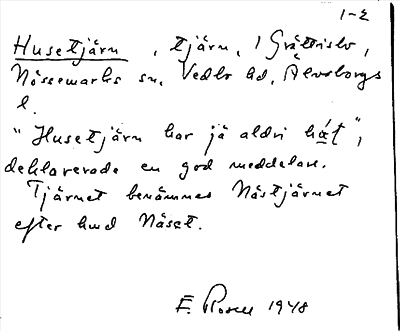 1-2
Husetjärn, tjärn, i Grättislv,
Nössemarks sn, Vedbo hd, Älvsborgs
l.
"Husetjärn har jä aldri hǻt",
deklarerade en god meddelare.
Tjärnet benämnes Nästjärnet
efter hmd Näset.
E. Rosell 1948